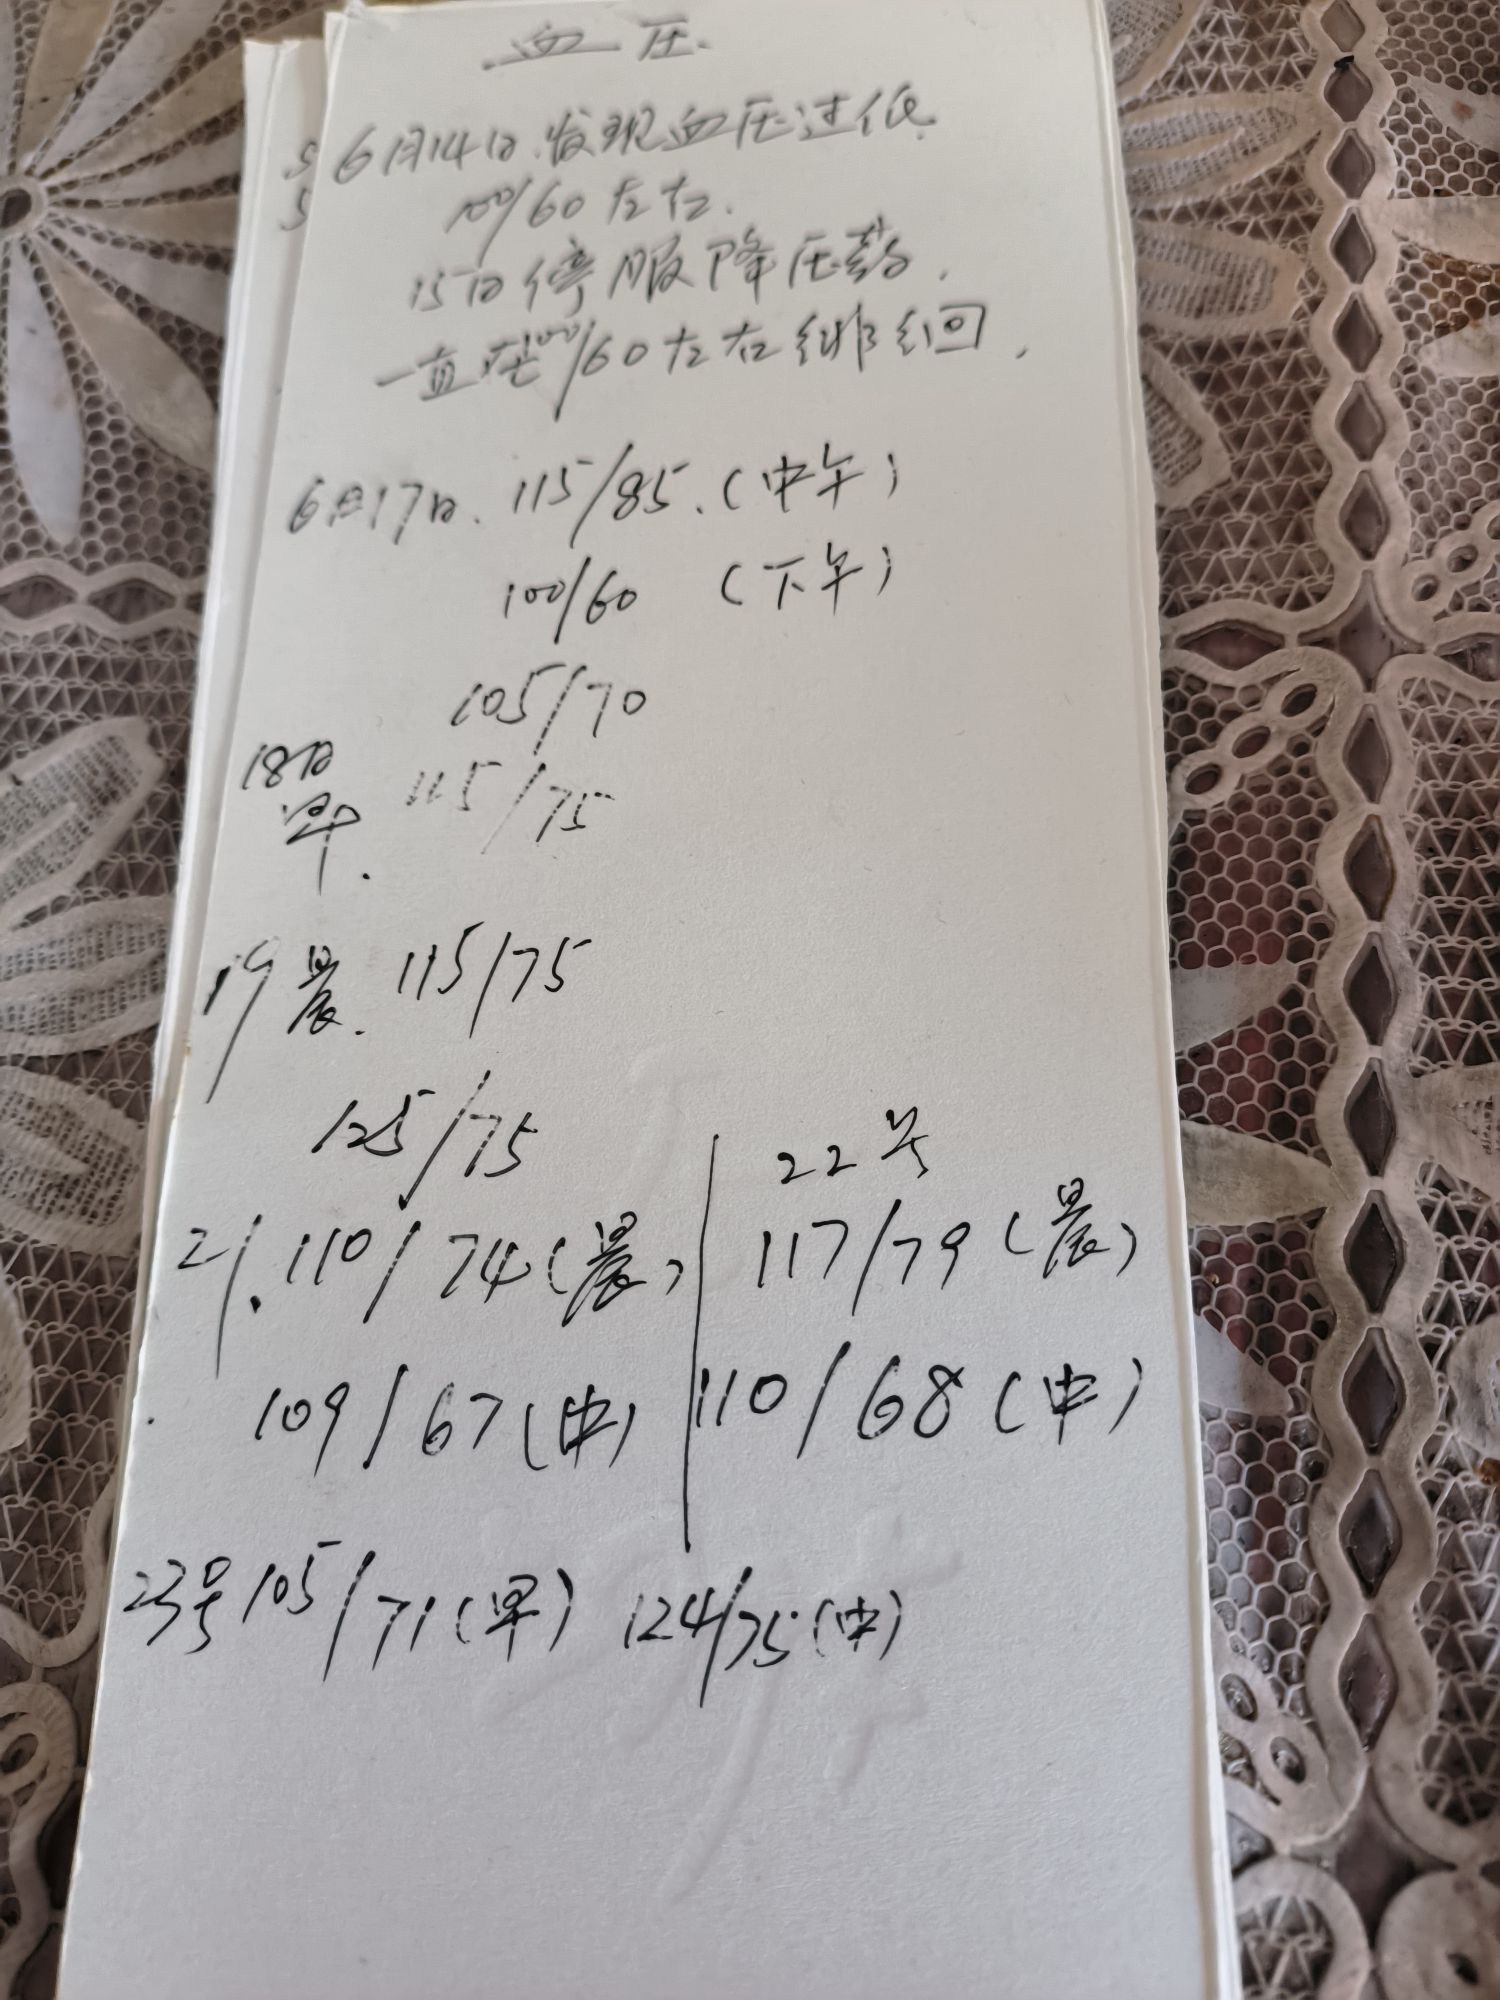 血压.
6月14日.发现血压过低.
100/60左右.
15日停服降压药.
一直在100/60左右徘徊.
6月17日. 115/85.(中午)
100/60 (下午)
105/70
18日
早. 115/75
19晨. 115/75
125/75
21. 110/74(晨)
109/67(中)
22号
117/79(晨)
110/68(中)
23号 105/71(早) 124/75(中)